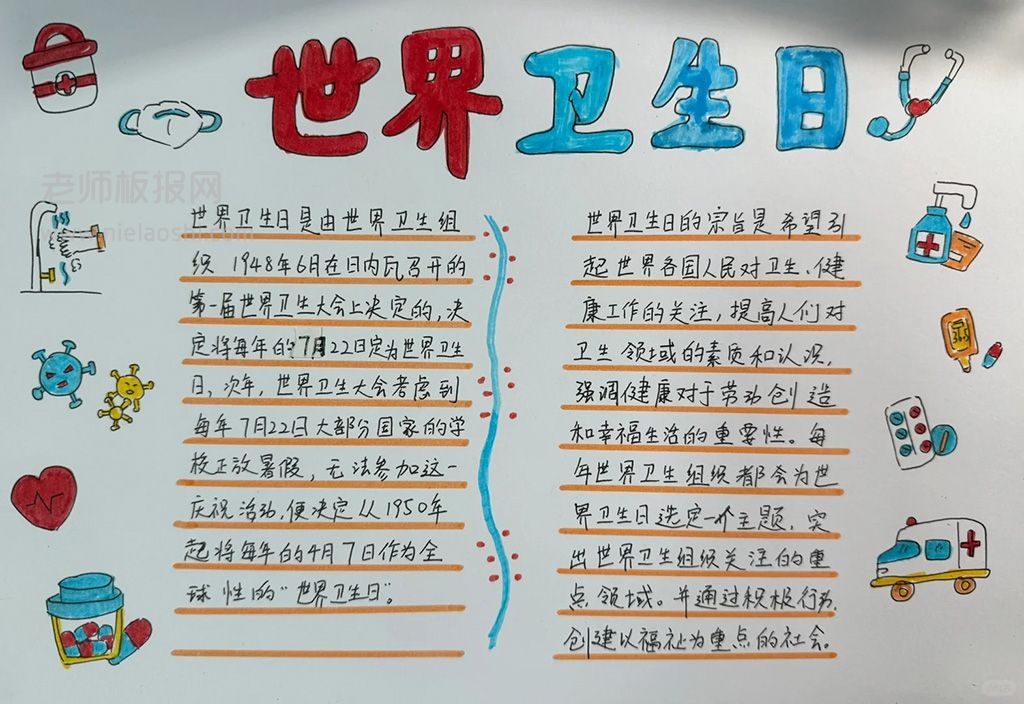 世界卫生日
老师板报网
世界卫生日是由世界卫生组
织 1948年6月在日内瓦召开的
第一届世界卫生大会上决定的,决
定将每年的7月22日定为世界卫生
日,次年,世界卫生大会考虑到
每年7月22日大部分国家的学
校正放暑假,无法参加这一
庆祝活动,便决定从1950年
起将每年的4月7日作为全
球性的“世界卫生日”。
世界卫生日的宗旨是希望引
起世界各国人民对卫生、健
康工作的关注,提高人们对
卫生领域的素质和认识,
强调健康对于劳动创造
和幸福生活的重要性。每
年世界卫生组织都会为世
界卫生日选定一个主题,突
出世界卫生组织关注的重
点领域。并通过积极行为,
创建以福祉为重点的社会。